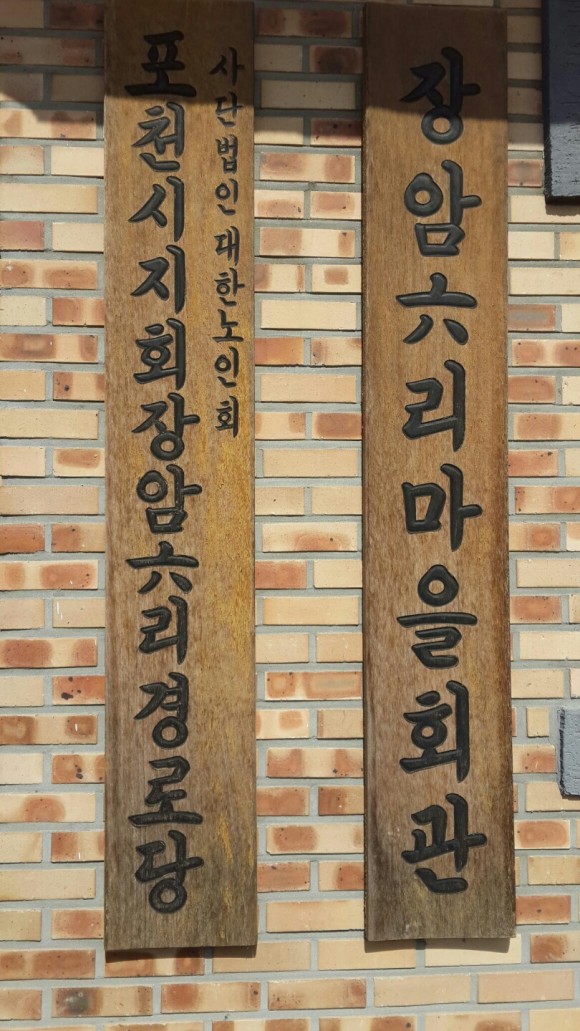 장암六리마을회관
사단법인대한노인회
포천시지회장암六리경로당